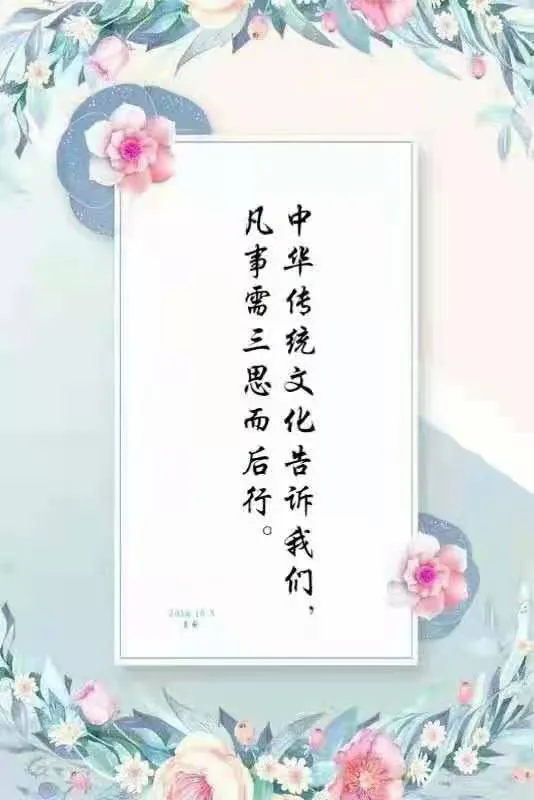 中华传统文化告诉我们，
凡事需三思而后行。